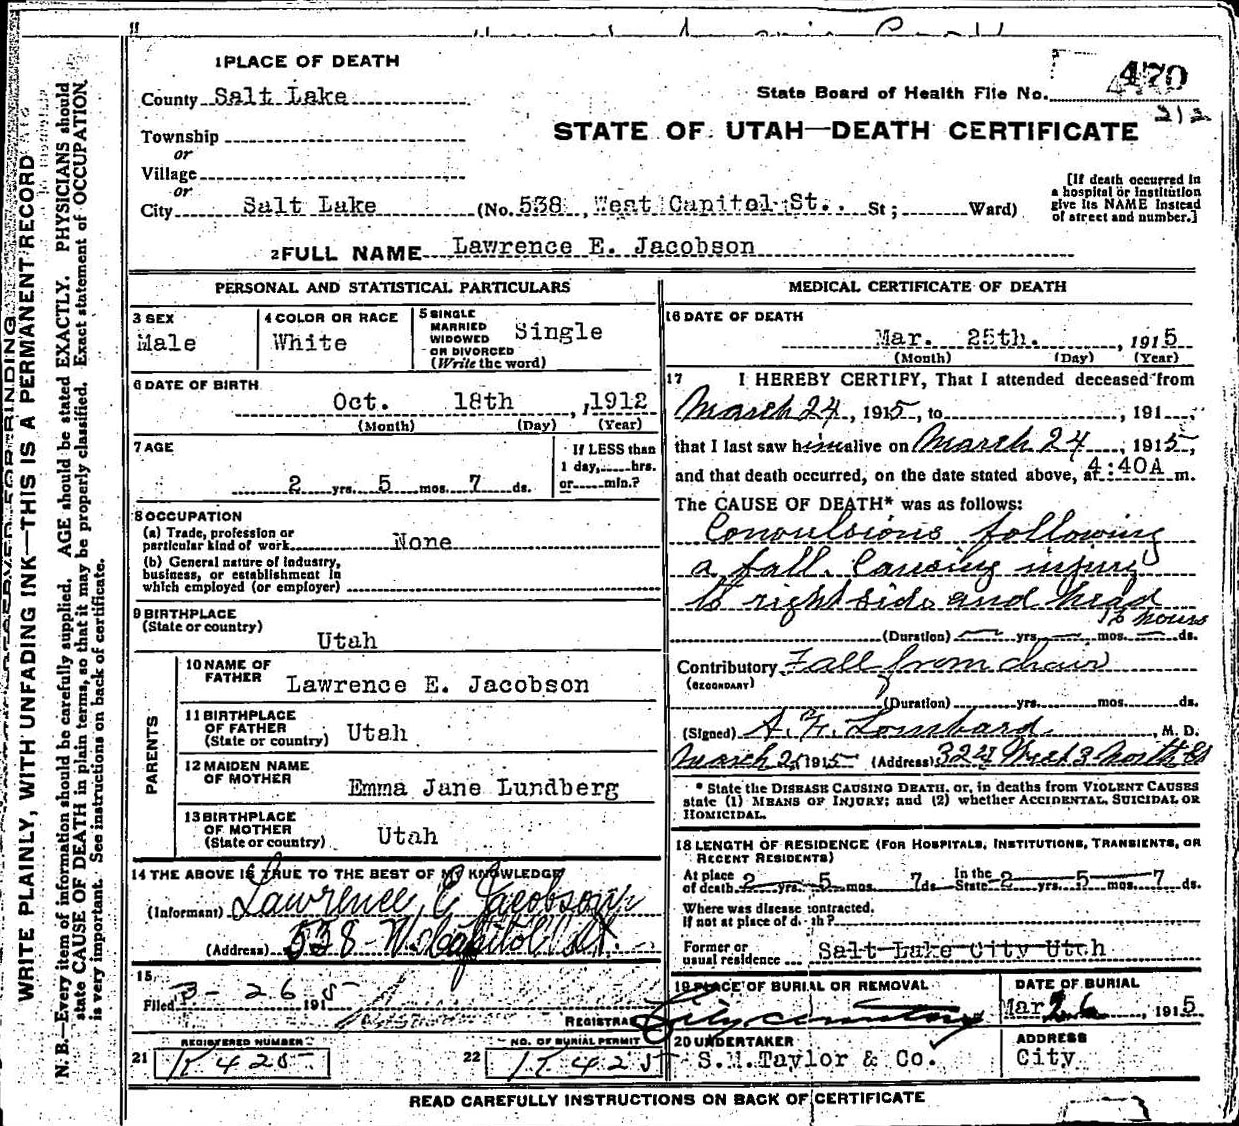 11
1 PLACE OF DEATH
County Salt Lake
Township
or
Village
or
City Salt Lake (No. 538, West Capitol St.. St; Ward)
470
State Board of Health File No.
212
STATE OF UTAH—DEATH CERTIFICATE
[If death occurred in
a hospital or institution
give its NAME instead
of street and number.]
2 FULL NAME Lawrence E. Jacobson
PERSONAL AND STATISTICAL PARTICULARS
3 SEX
Male
4 COLOR OR RACE
White
5 SINGLE
MARRIED
WIDOWED
OR DIVORCED
(Write the word)
Single
6 DATE OF BIRTH
Oct. 18th, 1912
(Month) (Day) (Year)
7 AGE
2 yrs. 5 mos. 7 ds.
If LESS than
1 day, hrs.
or min.?
8 OCCUPATION
(a) Trade, profession or
particular kind of work None
(b) General nature of industry,
business, or establishment in
which employed (or employer)
9 BIRTHPLACE
(State or country)
Utah
PARENTS
10 NAME OF
FATHER
Lawrence E. Jacobson
11 BIRTHPLACE
OF FATHER
(State or country) Utah
12 MAIDEN NAME
OF MOTHER
Emma Jane Lundberg
13 BIRTHPLACE
OF MOTHER
(State or country) Utah
14 THE ABOVE IS TRUE TO THE BEST OF MY KNOWLEDGE
(Informant) Lawrence E Jacobson
(Address) 538 W. Capitol St.
15
Filed 3-26 1915
REGISTRAR
REGISTERED NUMBER
21 R 425
NO. OF BURIAL PERMIT
22 R 425
MEDICAL CERTIFICATE OF DEATH
16 DATE OF DEATH
Mar. 25th. , 1915
(Month) (Day) (Year)
17 I HEREBY CERTIFY, That I attended deceased from
March 24, 1915, to , 191
that I last saw him alive on March 24, 1915,
and that death occurred, on the date stated above, at 4:40A m.
The CAUSE OF DEATH* was as follows:
Convulsions following
a fall. Causing injury
to right side and head
12 hours
(Duration) yrs. mos. ds.
Contributory Fall from chair
(SECONDARY)
(Duration) yrs. mos. ds.
(Signed) A. F. Lombard, M. D.
March 25 1915 (Address) 324 West 3 North St
* State the DISEASE CAUSING DEATH, or, in deaths from VIOLENT CAUSES
state (1) MEANS OF INJURY; and (2) whether ACCIDENTAL, SUICIDAL OR
HOMICIDAL.
18 LENGTH OF RESIDENCE (FOR HOSPITALS, INSTITUTIONS, TRANSIENTS, OR
RECENT RESIDENTS)
At place
of death 2 yrs. 5 mos. 7 ds. In the
State 2 yrs. 5 mos. 7 ds.
Where was disease contracted.
If not at place of death?
Former or
usual residence Salt Lake City Utah
19 PLACE OF BURIAL OR REMOVAL
City cemetery
DATE OF BURIAL
Mar 26, 1915
20 UNDERTAKER
S.M.Taylor & Co.
ADDRESS
City
READ CAREFULLY INSTRUCTIONS ON BACK OF CERTIFICATE
WRITE PLAINLY, WITH UNFADING INK—THIS IS A PERMANENT RECORD
N. B.—Every item of information should be carefully supplied. AGE should be stated EXACTLY. PHYSICIANS should
state CAUSE OF DEATH in plain terms, so that it may be properly classified. Exact statement of OCCUPATION
is very important. See instructions on back of certificate.